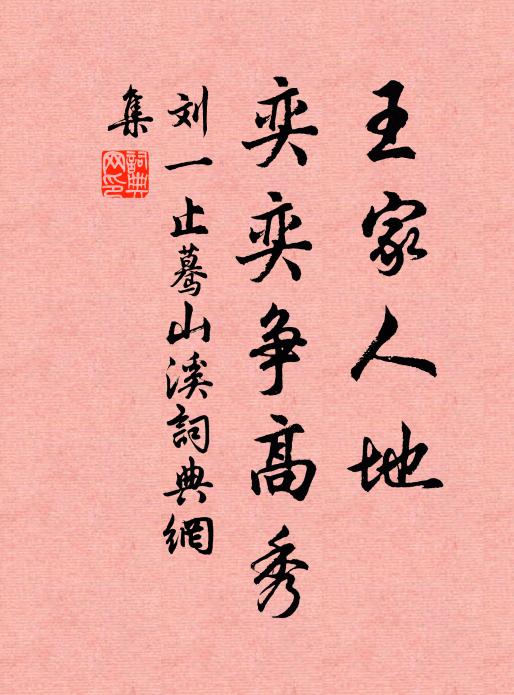 王家人地
奕奕争高秀
刘一止蓦山溪詞典網
集
詞典网印